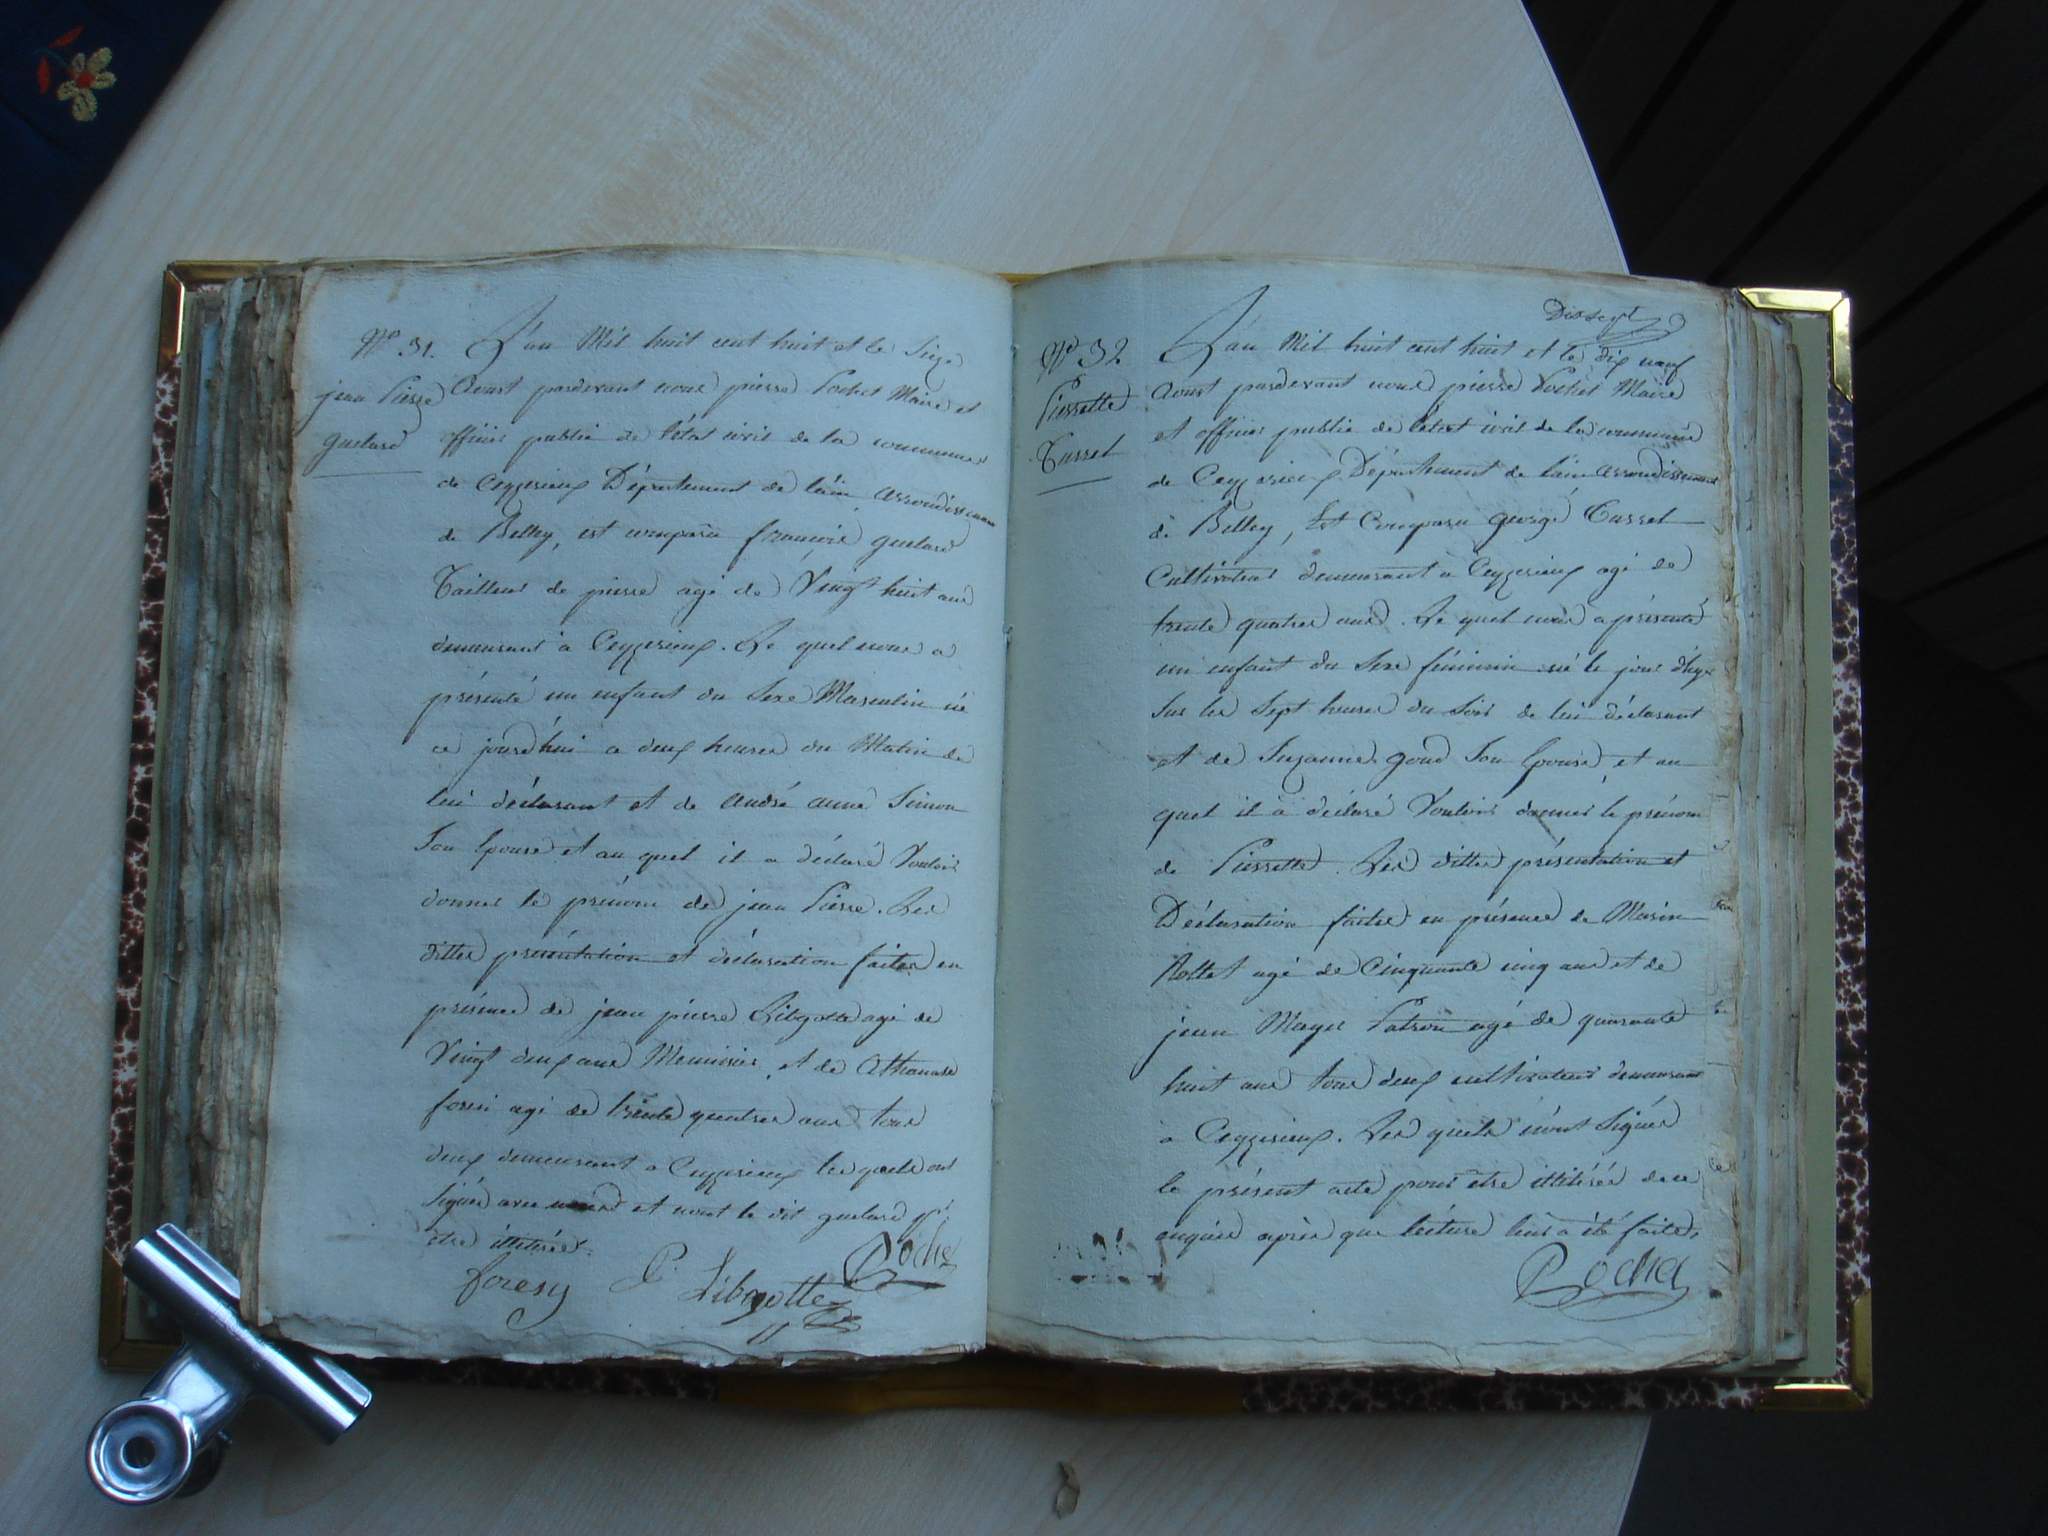 N° 31.
jean Pierre
guelard
L'an Mil huit cent huit et le Seize
Aoust pardevant nous pierre Pochet Maire et
officier public de l'état civil de la commune
de Ceyzerieux Département de l'ain arrondissement
de Belley, est comparu françois guelard
Tailleur de pierre agé de Vingt huit ans
demeurant à Ceyzerieux. Le quel nous a
présenté un enfant du Sexe Masculin né
ce jourd'hui a deux heures du Matin de
lui déclarant et de andré anne Simon
Son Epouse et au quel il a déclaré Vouloir
donner le prénom de jean Pierre. Les
dittes présentation et déclaration faites en
présence de jean pierre Libgotte agé de
Vingt deux ans Menuisier, et de Athanase
foresi agé de trente quatres ans tous
deux demeurant a Ceyzerieux les quels ont
Signés avec et nont le dit guelard pr
etre illitérée.
foresy P. Libgotte Pochet
Dixsept
N° 32
Pierrette
Tusset
L'an Mil huit cent huit et le dix neuf
Aoust pardevant nous pierre Pochet Maire
et officier public de l'état civil de la commune
de Ceyzerieux Département de l'ain arrondissement
de Belley, Est Comparu george Tusset
Cultivateur demeurant a Ceyzerieux agé de
trente quatres ans. Le quel nous a présenté
un enfant du Sexe féminin né le jour d'hyer
Sur les Sept heures du Soir de lui déclarant
et de Suzanne goud Son Epouse, et au
quel il à déclaré Vouloir donner le prénom
de Pierrette. Les dittes présentation et
Déclaration faites en présence de Marin
Rottet agé de Cinquante cinq ans et de
jean Mayer Patron agé de quarante
huit ans tous deux cultivateurs demeurant
a Ceyzerieux. Les quels n'ont Signés
le présent acte pour etre illitérés de ce
enquis après que lecture leur a été faite.
Pochet